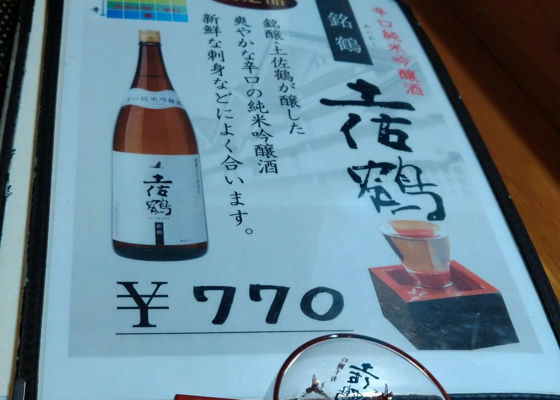 辛口純米吟醸酒
銘鶴
土佐鶴
銘醸・土佐鶴が醸した
爽やかな辛口の純米吟醸酒
新鮮な刺身などによく合います。
土佐鶴
¥770
土佐鶴